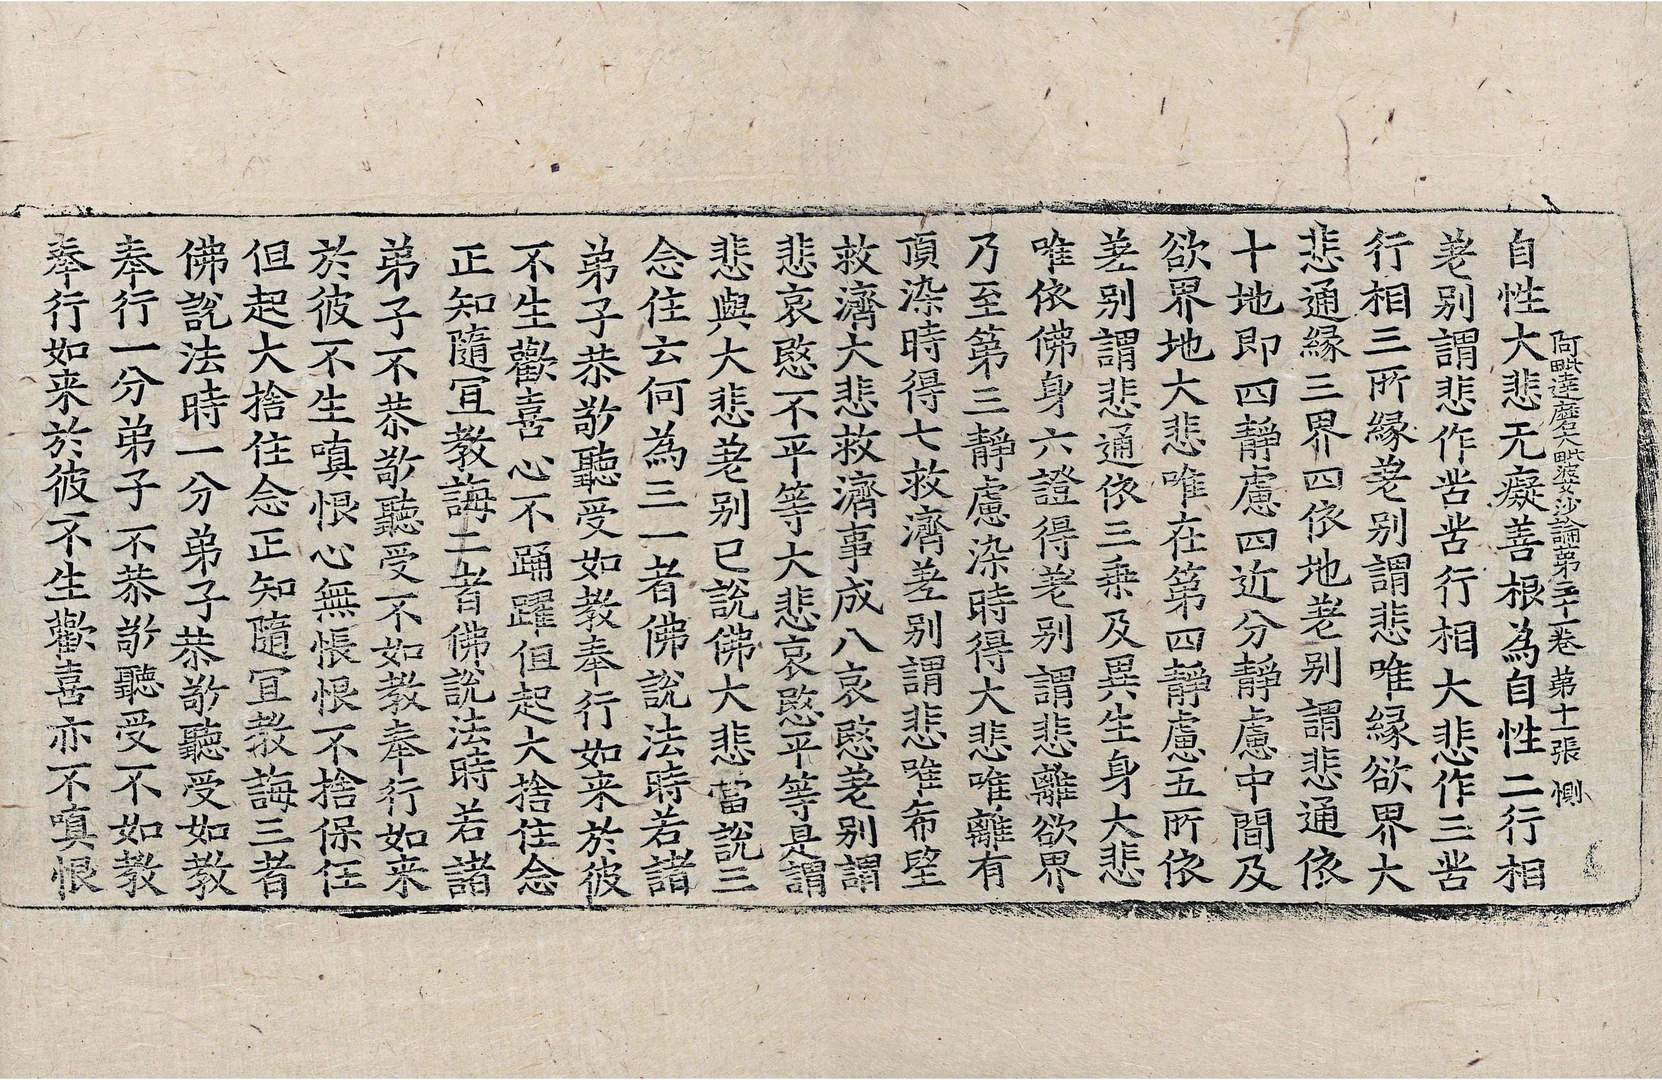 阿毗達磨大毗婆沙論第三十一卷 第十一張 惻
自性大悲无癡善根為自性二行相
差别謂悲作苦苦行相大悲作三苦
行相三所縁差别謂悲唯縁欲界大
悲通縁三界四依地差别謂悲通依
十地即四靜慮四近分靜慮中間及
欲界地大悲唯在第四靜慮五所依
差别謂悲通依三乗及異生身大悲
唯依佛身六證得差别謂悲離欲界
乃至第三靜慮染時得大悲唯離有
頂染時得七救濟差别謂悲唯希望
救濟大悲救濟事成八哀愍差别謂
悲哀愍不平等大悲哀愍平等是謂
悲與大悲差别已説佛大悲當説三
念住云何為三一者佛說法時若諸
弟子恭敬聽受如教奉行如来於彼
不生歡喜心不踊躍但起大捨住念
正知隨冝教誨二者佛説法時若諸
弟子不恭敬聽受不如教奉行如来
於彼不生嗔恨心無悵恨不捨保任
但起大捨住念正知隨冝教誨三者
佛說法時一分弟子恭敬聽受如教
奉行一分弟子不恭敬聽受不如教
奉行如来於彼不生歡喜亦不嗔恨